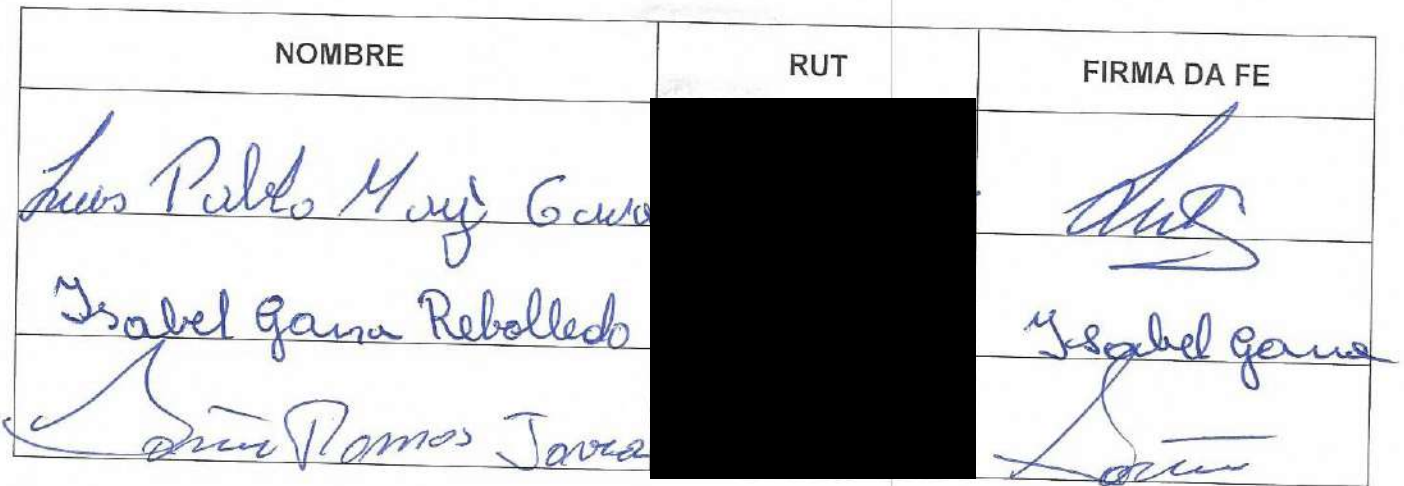 NOMBRE RUT FIRMA DA FE
Luis Pablo Gana
Isabel Gana Rebolledo Isabel Gana
Ramos